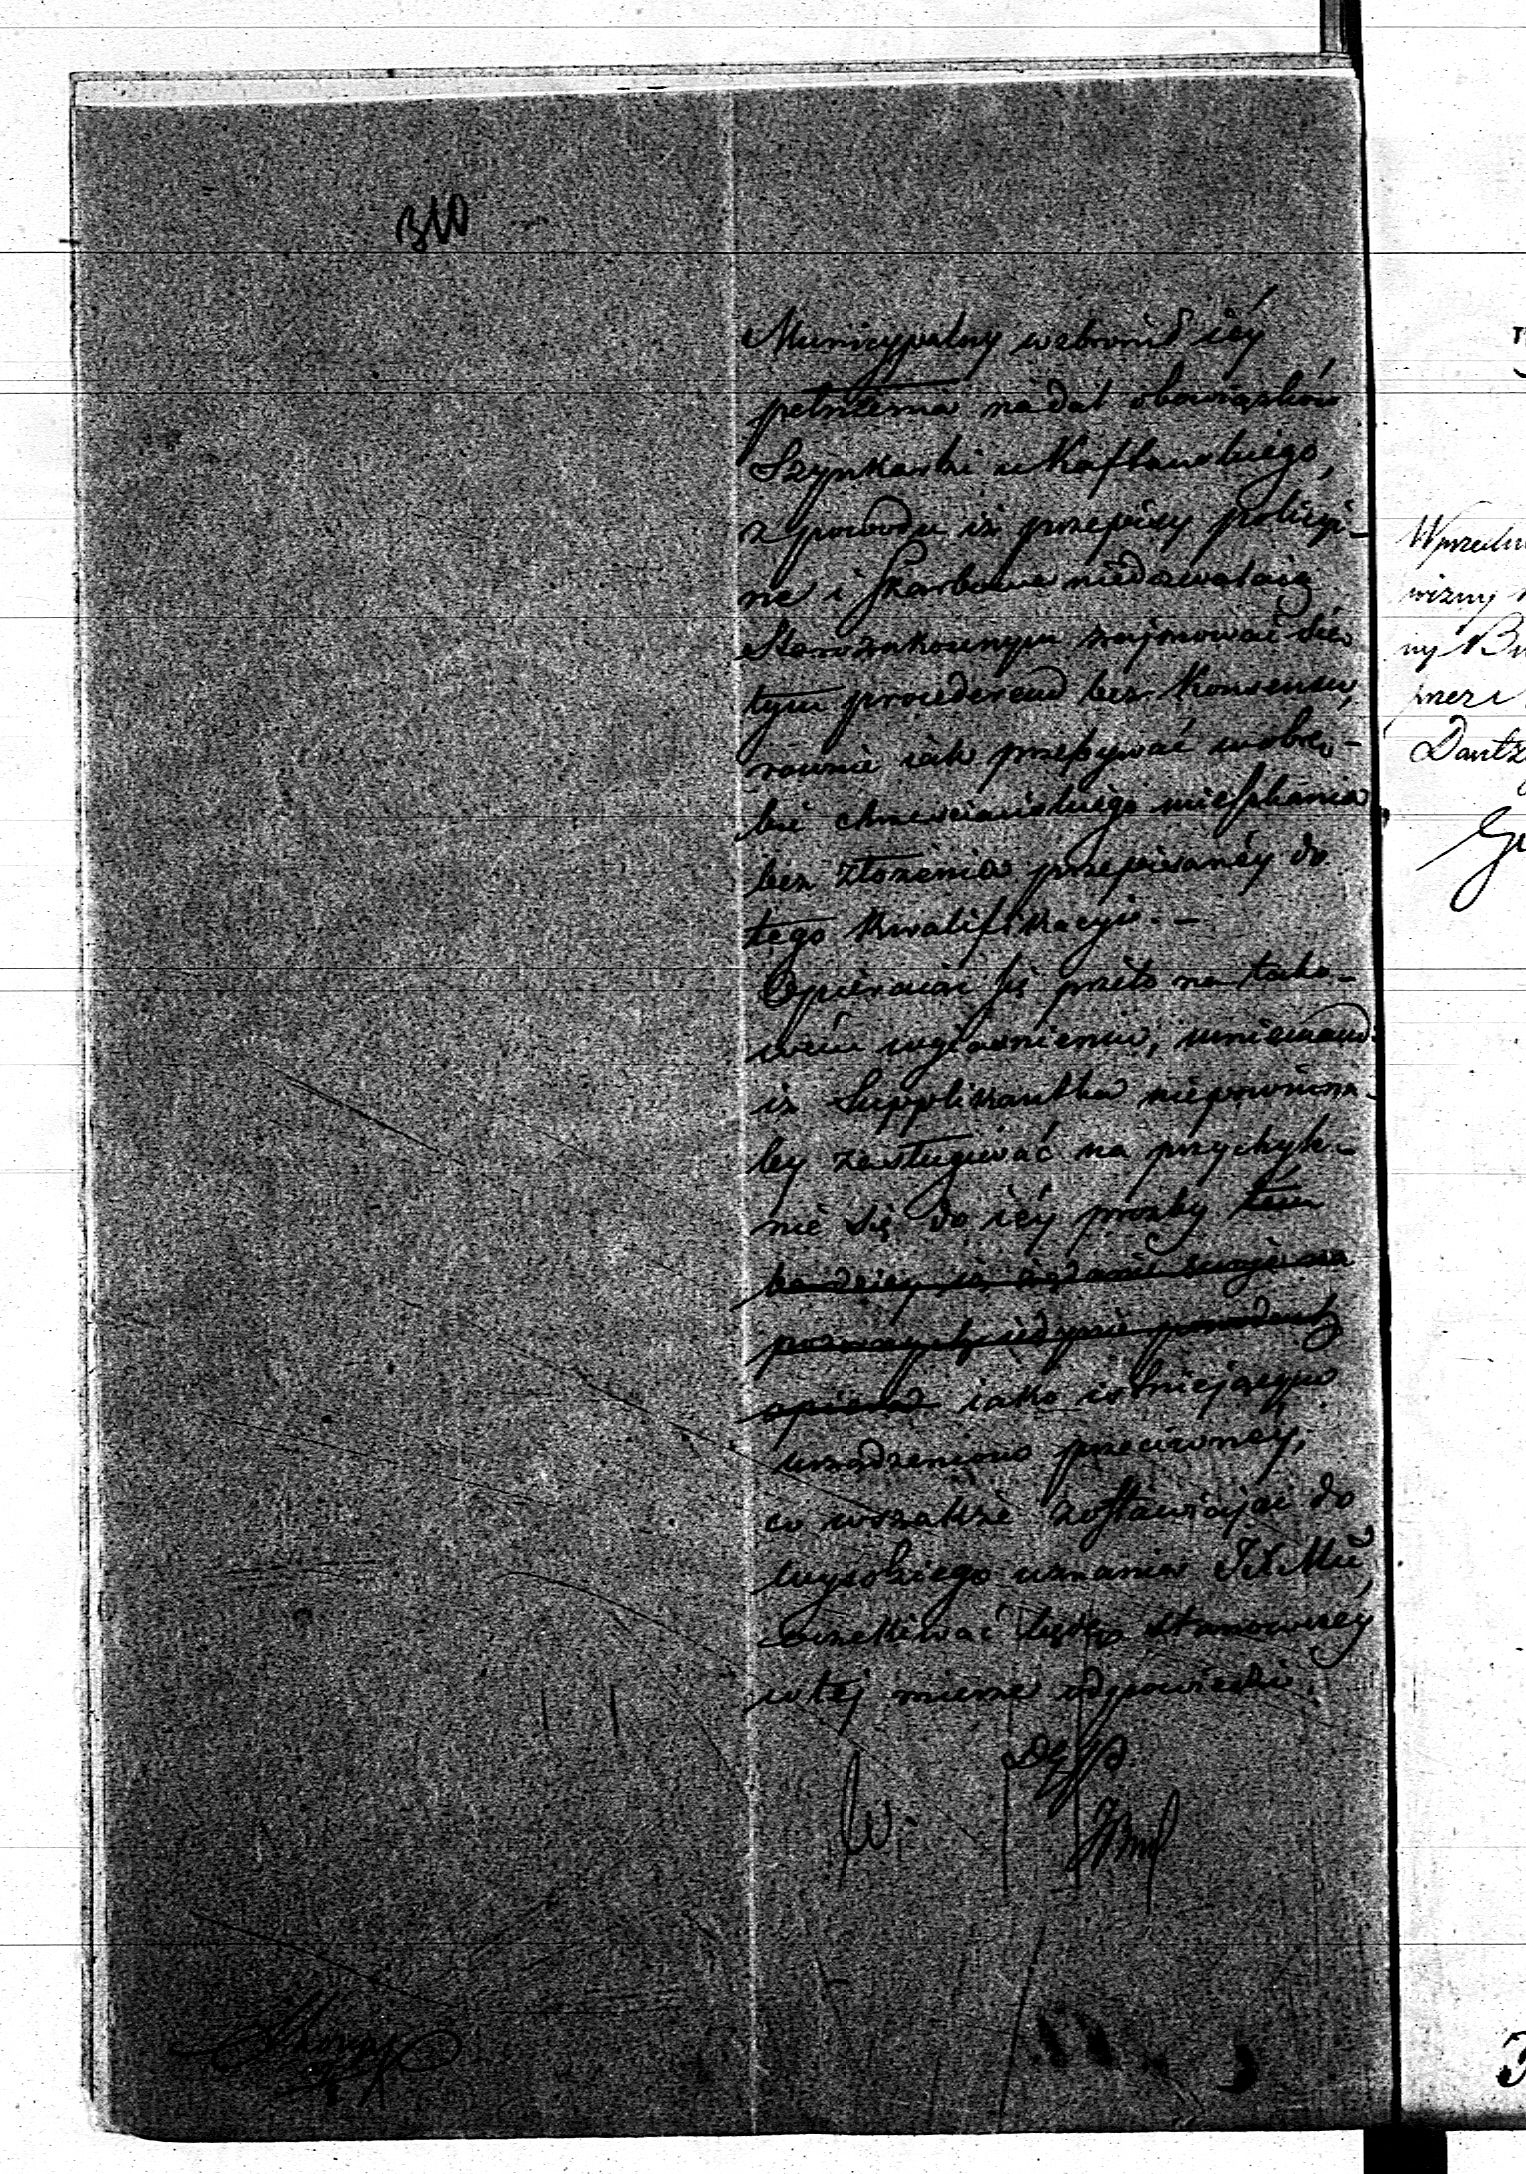 310
Municypalny wzbronił iéy
pełnienia nadal obowiązków
Szynkarki u Kaftanskiego,
z powodu iż przepisy policyi-
ne i Skarbowe niedozwalaią
Starozakonnym zajmować się
tym procederem bez Konsensu,
równie iak przebywać w obrę-
bie chrześciańskiego mieszkania
bez złożenia przepisanéy do
tego kwalifikacyi. –
Opieraiąc się przeto na tako-
wém wyiaśnieniu, mniemam
iż Supplikantka niepowinna-
by zasługiwać na przychyle-
nie się do iéy prośby tém
bardziey iż żądanie
iedynie
opiera iako istniejącym
urządzeniom przeciwnéy,
co wszakże zostawiając do
wysokiego uznania
oczekiwać będę stanowczéy
w tej mierze odpowiedzi.
W przedm
wizny
ny Bu
przez
Dantz